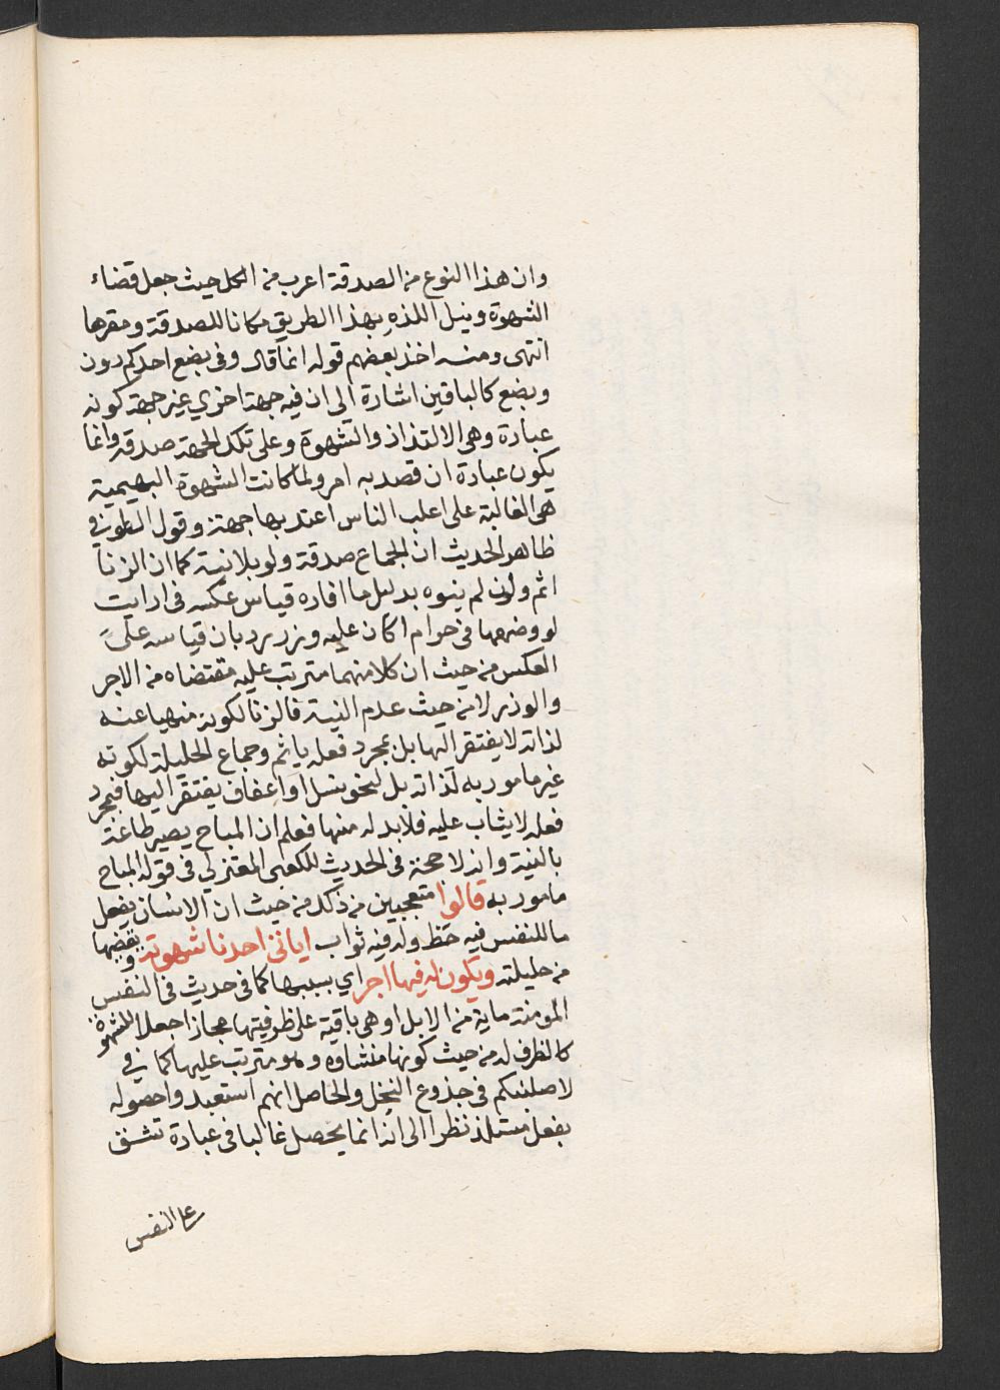 وان هذا النوع من الصدقة اعرب من الكل حيث جعل قضاء
الشهوة وينل اللذه بهذا الطريق مكانا للصدقة ومقرها
انتهى ومنه اخذ بعضهم قوله انما قال وفى بضع احدكم دون
وبضع كالباقين اشارة الى ان فيه جهة اخري غير جهة كونه
عبادة وهى الالتذاذ والشهوة وعلى تلك الجهة صدقة وانما
يكون عبادة ان قصد به امر ولما كانت الشهوة البهيمية
هى الغالبة على اغلب الناس اعتد بها جهة وقول الطوفي
ظاهر الحديث ان الجماع صدقة ولو بلا نية كما ان الزنا
اثم وان لم ينوه بدليل ما افاده قياس عكسه فى ارايت
لو وضعها فى حرام اكان عليه وزر يرد بان قياسه على
العكس من حيث ان كلا منهما مترتب عليه مقتضاه من الاجر
والوزر لا من حيث عدم النية فالزنا لكونه منهيا عنه
لذاته لا يفتقر اليها بل بمجرد فعله ياثم وجماع الحليلة لكونه
غير مامور به لذاته بل لنحو نسل او اعفاف يفتقر اليها فبمجرد
فعله لا يثاب عليه فلابد له منها فعلم ان المباح يصير طاعة
بالنية وانه لا حجة فى الحديث للكعبى المعتزلى فى قوله المباح
مامور به قالوا متعجبين من ذلك من حيث ان الانسان يفعل
ما للنفس فيه حظ وله فيه ثواب اياتى احدنا شهوته ويقضها
من حليلته ويكون له فيها اجر اي بسببها كما فى حديث فى النفس
المومنة ماية من الابل او هى باقية على ظرفيتها مجازا جعلا للشهوة
كالظرف له من حيث كونها منشاوه وهو مترتب عليها كما في
لاصلبنكم فى جذوع النخل والحاصل انهم استبعدوا حصوله
بفعل مستلذ نظرا الى انه انما يحصل غالبا فى عبادة تشق
على النفس